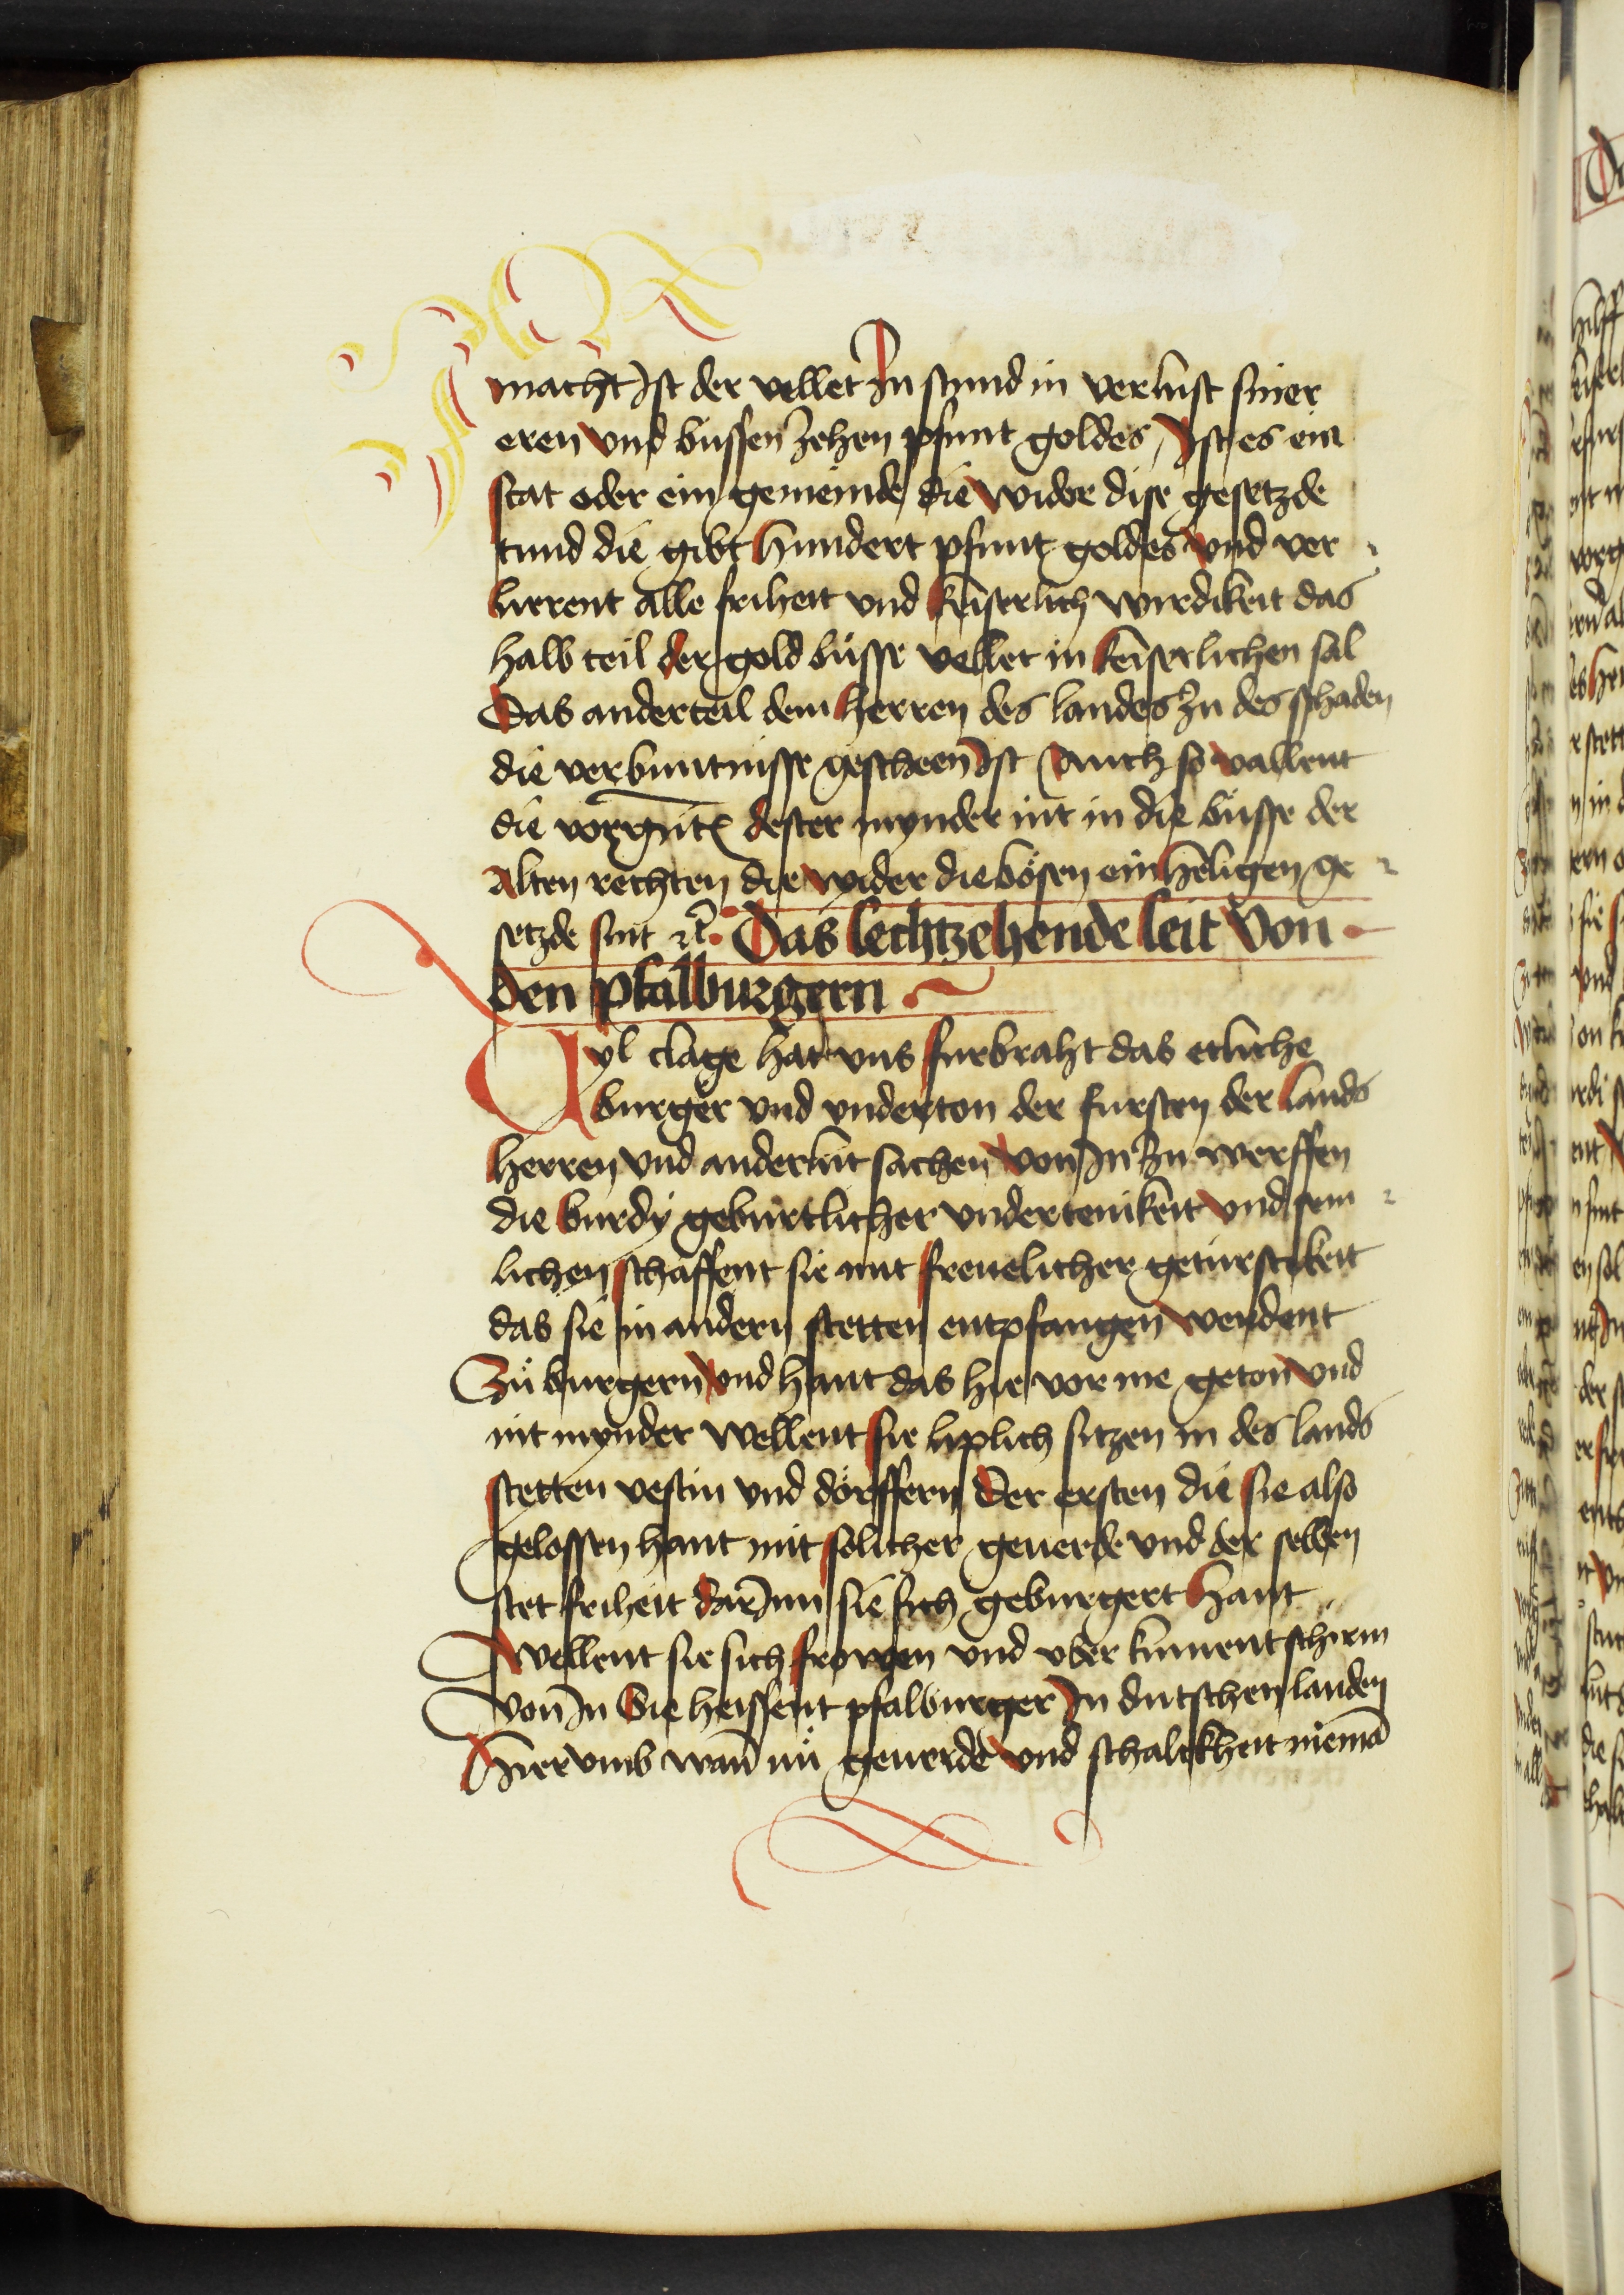 macht Ist der vellet In stund in verlust siner
eren vnd bussen zehen pfunt goldes, Ist es ein
stat oder ein gemeinde die wider dise gesetzde
tund die gibt hundert pfunt goldes vnd ver
lierent alle friheit vnd keiserlich wirdikeit das
halb teil der gold büsse vellet in keiserlichen sal
Das ander teil dem herren des landes zu des schaden
die verbuntnisse gescheen Ist Ouch so vallent
die dester mynder nit in die büsse der
alten rechten die wider die bösen einhelligen ge
setzde sint etc. Das sechtzehende seit Von
den pfalburgern
Vyl clage hat vns furbraht das etliche
burger vnd vnderton der fursten der lands
herren vnd ander lüt sachen von In zu werffen
die burdy gebürtlicher vndertenikeit vnd sem
lichen schaffent sie mit freuelicher getürstikeit
das sie in andern stetten entpfangen werdent
Zü burgern vnd hant das hie vor me geton vnd
nit mynder wellent sie liplich sitzen in des lands
stetten vestin vnd dörffern Der ersten die sie also
gelossen hant mit solicher geuerde vnd der selben
stet friheit dar Inn sie sich geburgert hant
Wellent sie sich frowen vnd vber kument schirm
von In Die heissent pfalburger In dutschen landen
Hier vmb wañ nü geuerde vnd schalckheit niemã